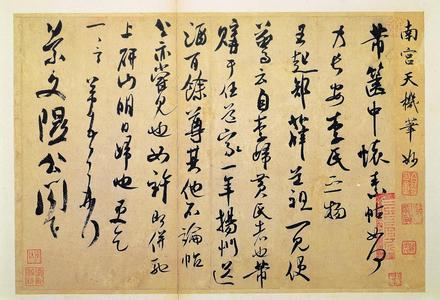 南宮天機筆妙
芾篋中懷素帖如何
乃長安李氏之物
王起部薛道祖一見便
驚云自李歸黃氏者也芾
購于任道家一年揚州送
酒百餘尊其他不論帖
公亦嘗見也如許即併馳
上研山明日歸也更乞
一言芾頓首
景文隰公閣下